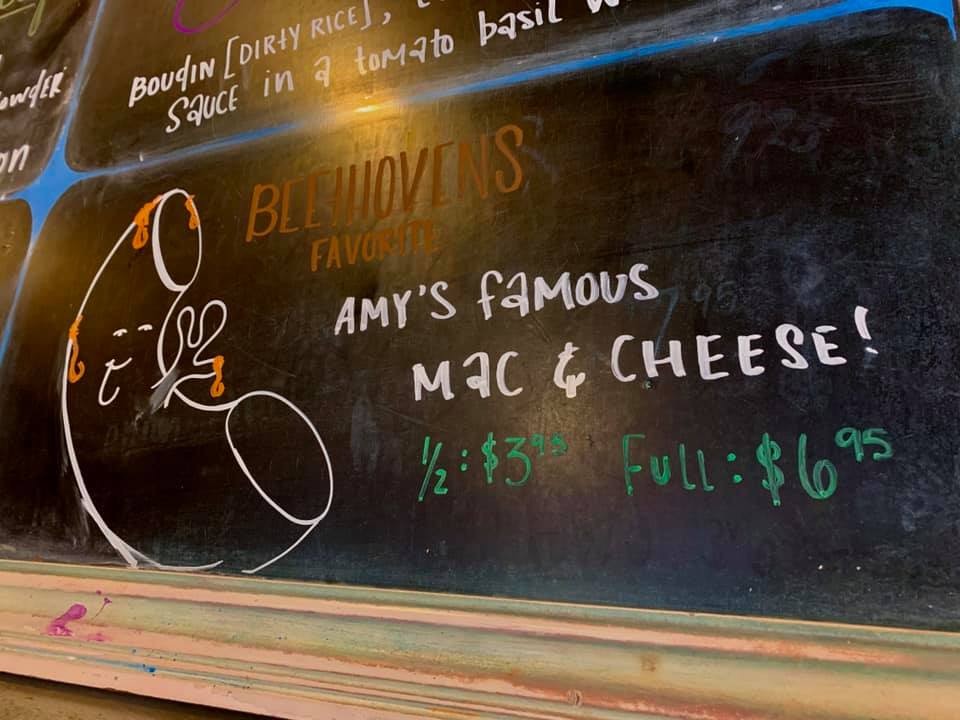 BOUDIN [DIRTY RICE],
SAUCE in a tomato basil
BEETHOVENS
FAVORITE
AMY'S FAMOUS
MAC & CHEESE!
1/2: $3.95 Full: $6.95